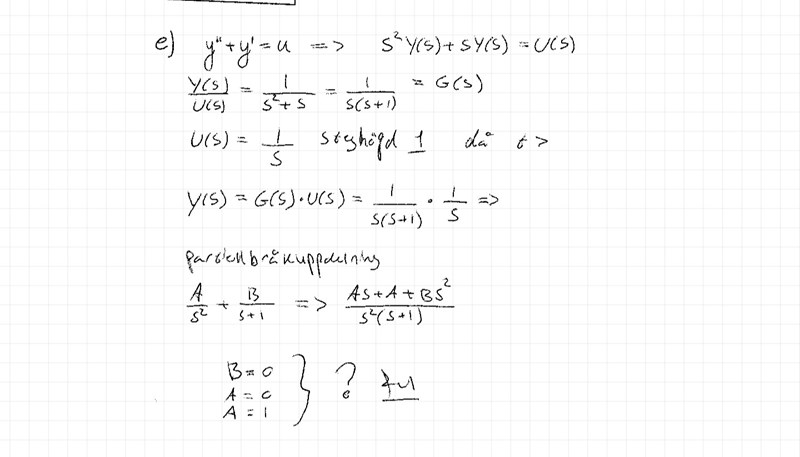 e) y'' + y' = u => S²Y(s) + SY(s) = U(s)
Y(s)/U(s) = 1/(S² + S) = 1/(S(S+1)) = G(s)
U(s) = 1/S steghöjd 1 då t >
Y(s) = G(s)·U(s) = 1/(S(S+1)) · 1/S =>
partiellbråkuppdelning
A/S² + B/(S+1) => (AS + A + BS²)/(S²(S+1))
B = 0
A = 0 } ?
A = 1